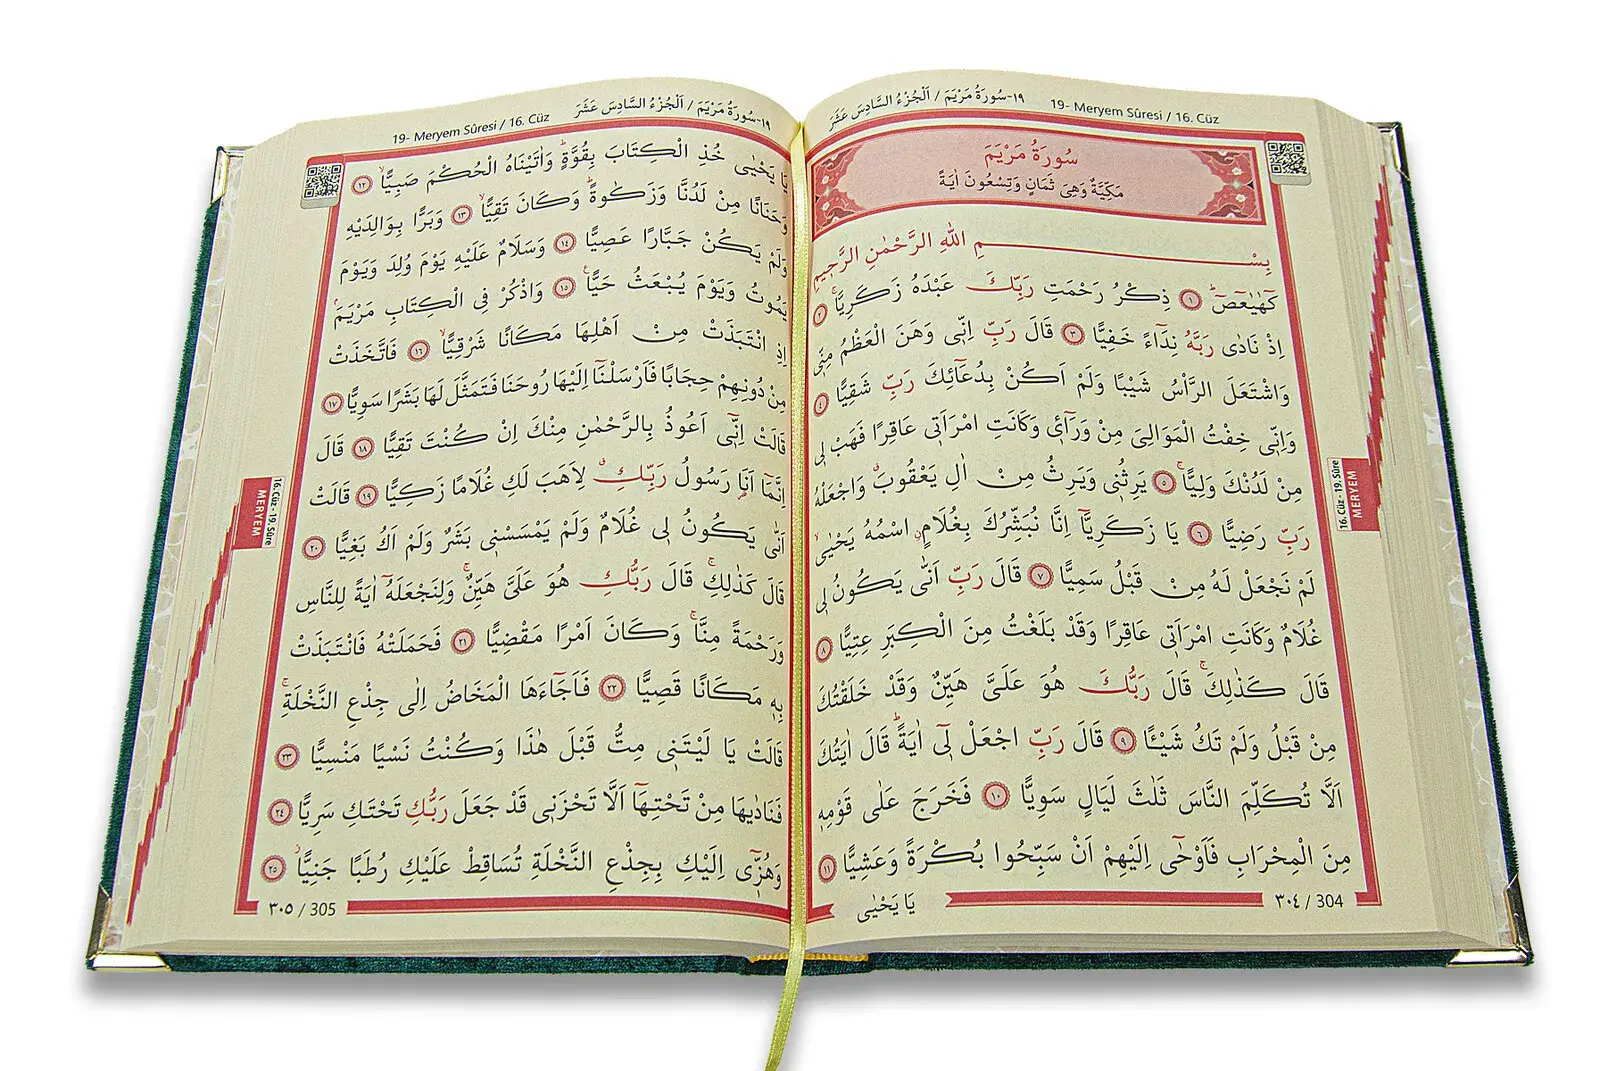 ١٩-سُورَةُ مَرْيَمَ / اَلْجُزْءُ السَّادِسَ عَشَرَ
19- Meryem Sûresi / 16. Cüz
سُورَةُ مَرْيَمَ
مَكِّيَّةٌ وَهِىَ ثَمَانٍ وَتِسْعُونَ اٰيَةً
بِسْمِ اللهِ الرَّحْمٰنِ الرَّحٖيمِ
كٓهٰيٰعٓصٓ ﴿١﴾ ذِكْرُ رَحْمَتِ رَبِّكَ عَبْدَهُ زَكَرِيَّا ﴿٢﴾
اِذْ نَادٰى رَبَّهُ نِدَٓاءً خَفِيًّا ﴿٣﴾ قَالَ رَبِّ اِنّٖى وَهَنَ الْعَظْمُ مِنّٖى
وَاشْتَعَلَ الرَّأْسُ شَيْبًا وَلَمْ اَكُنْ بِدُعَٓائِكَ رَبِّ شَقِيًّا ﴿٤﴾
وَاِنّٖى خِفْتُ الْمَوَالِىَ مِنْ وَرَٓاءٖى وَكَانَتِ امْرَاَتٖى عَاقِرًا فَهَبْ لٖى
مِنْ لَدُنْكَ وَلِيًّا ﴿٥﴾ يَرِثُنٖى وَيَرِثُ مِنْ اٰلِ يَعْقُوبَ وَاجْعَلْهُ
رَبِّ رَضِيًّا ﴿٦﴾ يَا زَكَرِيَّٓا اِنَّا نُبَشِّرُكَ بِغُلَامٍ اسْمُهُ يَحْيٰى
لَمْ نَجْعَلْ لَهُ مِنْ قَبْلُ سَمِيًّا ﴿٧﴾ قَالَ رَبِّ اَنّٰى يَكُونُ لٖى
غُلَامٌ وَكَانَتِ امْرَاَتٖى عَاقِرًا وَقَدْ بَلَغْتُ مِنَ الْكِبَرِ عِتِيًّا ﴿٨﴾
قَالَ كَذٰلِكَ قَالَ رَبُّكَ هُوَ عَلَىَّ هَيِّنٌ وَقَدْ خَلَقْتُكَ
مِنْ قَبْلُ وَلَمْ تَكُ شَيْـًٔا ﴿٩﴾ قَالَ رَبِّ اجْعَلْ لٖٓى اٰيَةً قَالَ اٰيَتُكَ
اَلَّا تُكَلِّمَ النَّاسَ ثَلٰثَ لَيَالٍ سَوِيًّا ﴿١٠﴾ فَخَرَجَ عَلٰى قَوْمِهٖ
مِنَ الْمِحْرَابِ فَاَوْحٰٓى اِلَيْهِمْ اَنْ سَبِّحُوا بُكْرَةً وَعَشِيًّا ﴿١١﴾
يَا يَحْيٰى
٣٠٤ / 304
16. Cüz - 19. Sûre
MERYEM
19- Meryem Sûresi / 16. Cüz
١٩-سُورَةُ مَرْيَمَ / اَلْجُزْءُ السَّادِسَ عَشَرَ
يَا يَحْيٰى خُذِ الْكِتَابَ بِقُوَّةٍ وَاٰتَيْنَاهُ الْحُكْمَ صَبِيًّا ﴿١٢﴾
وَحَنَانًا مِنْ لَدُنَّا وَزَكٰوةً وَكَانَ تَقِيًّا ﴿١٣﴾ وَبَرًّا بِوَالِدَيْهِ
وَلَمْ يَكُنْ جَبَّارًا عَصِيًّا ﴿١٤﴾ وَسَلَامٌ عَلَيْهِ يَوْمَ وُلِدَ وَيَوْمَ
يَمُوتُ وَيَوْمَ يُبْعَثُ حَيًّا ﴿١٥﴾ وَاذْكُرْ فِى الْكِتَابِ مَرْيَمَ
اِذِ انْتَبَذَتْ مِنْ اَهْلِهَا مَكَانًا شَرْقِيًّا ﴿١٦﴾ فَاتَّخَذَتْ
مِنْ دُونِهِمْ حِجَابًا فَاَرْسَلْنَٓا اِلَيْهَا رُوحَنَا فَتَمَثَّلَ لَهَا بَشَرًا سَوِيًّا ﴿١٧﴾
قَالَتْ اِنّٖٓى اَعُوذُ بِالرَّحْمٰنِ مِنْكَ اِنْ كُنْتَ تَقِيًّا ﴿١٨﴾ قَالَ
اِنَّمَٓا اَنَا رَسُولُ رَبِّكِ لِاَهَبَ لَكِ غُلَامًا زَكِيًّا ﴿١٩﴾ قَالَتْ
اَنّٰى يَكُونُ لٖى غُلَامٌ وَلَمْ يَمْسَسْنٖى بَشَرٌ وَلَمْ اَكُ بَغِيًّا ﴿٢٠﴾
قَالَ كَذٰلِكِ قَالَ رَبُّكِ هُوَ عَلَىَّ هَيِّنٌ وَلِنَجْعَلَهُٓ اٰيَةً لِلنَّاسِ
وَرَحْمَةً مِنَّا وَكَانَ اَمْرًا مَقْضِيًّا ﴿٢١﴾ فَحَمَلَتْهُ فَانْتَبَذَتْ
بِهٖ مَكَانًا قَصِيًّا ﴿٢٢﴾ فَاَجَٓاءَهَا الْمَخَاضُ اِلٰى جِذْعِ النَّخْلَةِ
قَالَتْ يَا لَيْتَنٖى مِتُّ قَبْلَ هٰذَا وَكُنْتُ نَسْيًا مَنْسِيًّا ﴿٢٣﴾
فَنَادٰيهَا مِنْ تَحْتِهَٓا اَلَّا تَحْزَنٖى قَدْ جَعَلَ رَبُّكِ تَحْتَكِ سَرِيًّا ﴿٢٤﴾
وَهُزّٖٓى اِلَيْكِ بِجِذْعِ النَّخْلَةِ تُسَاقِطْ عَلَيْكِ رُطَبًا جَنِيًّا ﴿٢٥﴾
٣٠٥ / 305
16. Cüz - 19. Sûre
MERYEM